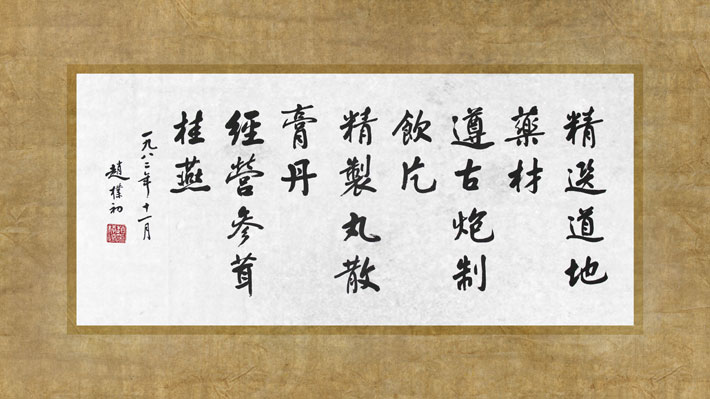 精选道地
藥材
遵古炮制
飲片
精製丸散
膏丹
經營参茸
桂燕
一九八二年十一月
趙樸初